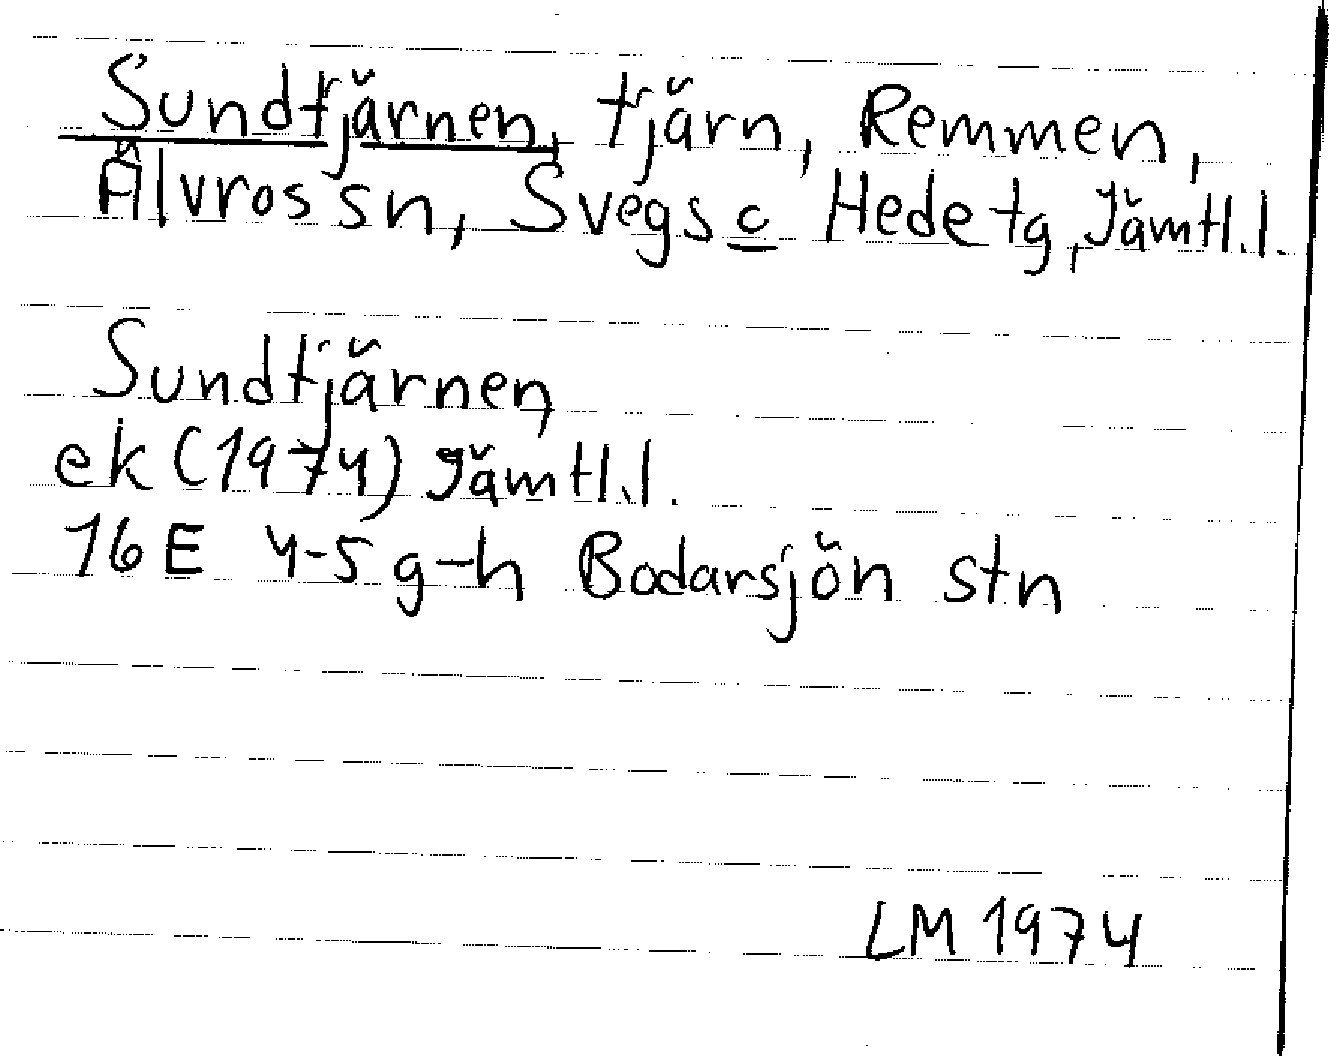 Sundtjärnen, tjärn, Remmen,
Älvros sn, Svegs o Hede tg, Jämtl.l.
Sundtjärnen
ek (1974) Jämtl.l.
16E 4-5 g-h Bodarsjön stn
LM 1974